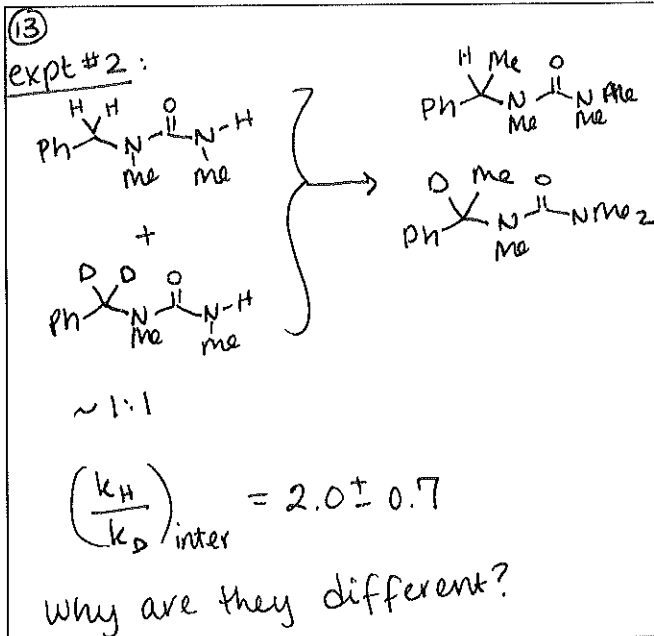 13
expt #2:
H H O
Ph N N-H
Me Me
+
D D O
Ph N N-H
Me Me
~ 1:1
H Me O
Ph N N Me
Me Me
D Me O
Ph N NMe2
Me
(kH/kD)inter = 2.0 ± 0.7
Why are they different?